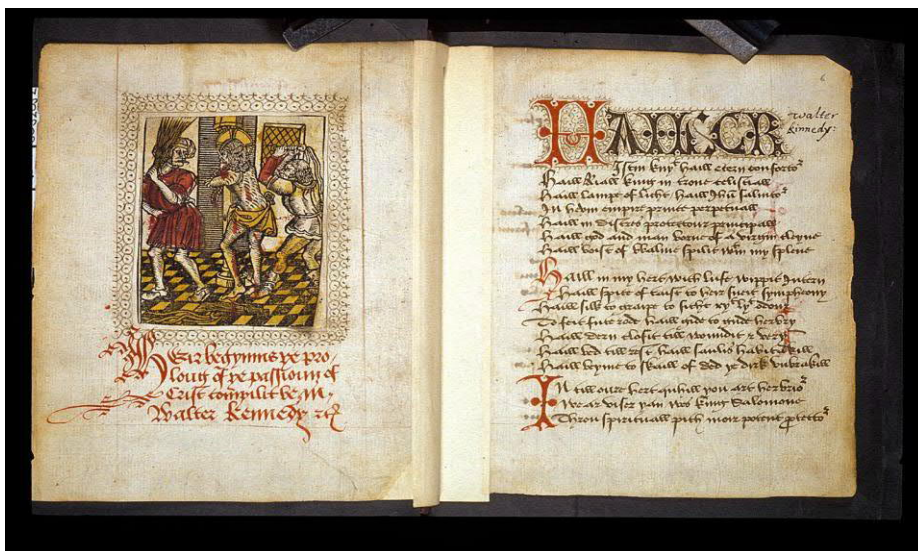 Heir begynnis þe pro-
loug of þe passioun of
Crist compilit be M
Walter Kennedy
6
walter
kennedy:
HAILL CR
istin kny^t haill etern confortoʳ
Haill Riall king in trone celestiall
Haill lampe of licht haill Ihū saluitoʳ
In hevin empire prince perpetuall
Haill in distres protectour principall
Haill god and man borne of a virgin cleyne
Haill boist of balme spilit wtin my splene
Haill in my hert with lufe wippit Intern
Haill spice of taist to heir sueit symphony
Haill silk to graip to sicht
To feit fute rod haill gide to gude herbry
Haill dern closit till woundit & very
Haill bed till rest haill saulis habitakill
Haill keyme to skaill of ded þe dirk vmbrakill
In till oure hert quhill þou art herbrioʳ
We ar viser þan wes king Salomone
Throu spirituall pith moir potent ꝓtettoʳ